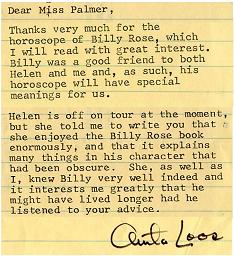 Dear Miss Palmer,
Thanks very much for the
horoscope of Billy Rose, which
I will read with great interest.
Billy was a good friend to both
Helen and me and, as such, his
horoscope will have special
meanings for us.
Helen is off on tour at the moment,
but she told me to write you that
she enjoyed the Billy Rose book
enormously, and that it explains
many things in his character that
had been obscure. She, as well as
I, knew Billy very well indeed and
it interests me greatly that he
might have lived longer had he
listened to your advice.
Anita Loos